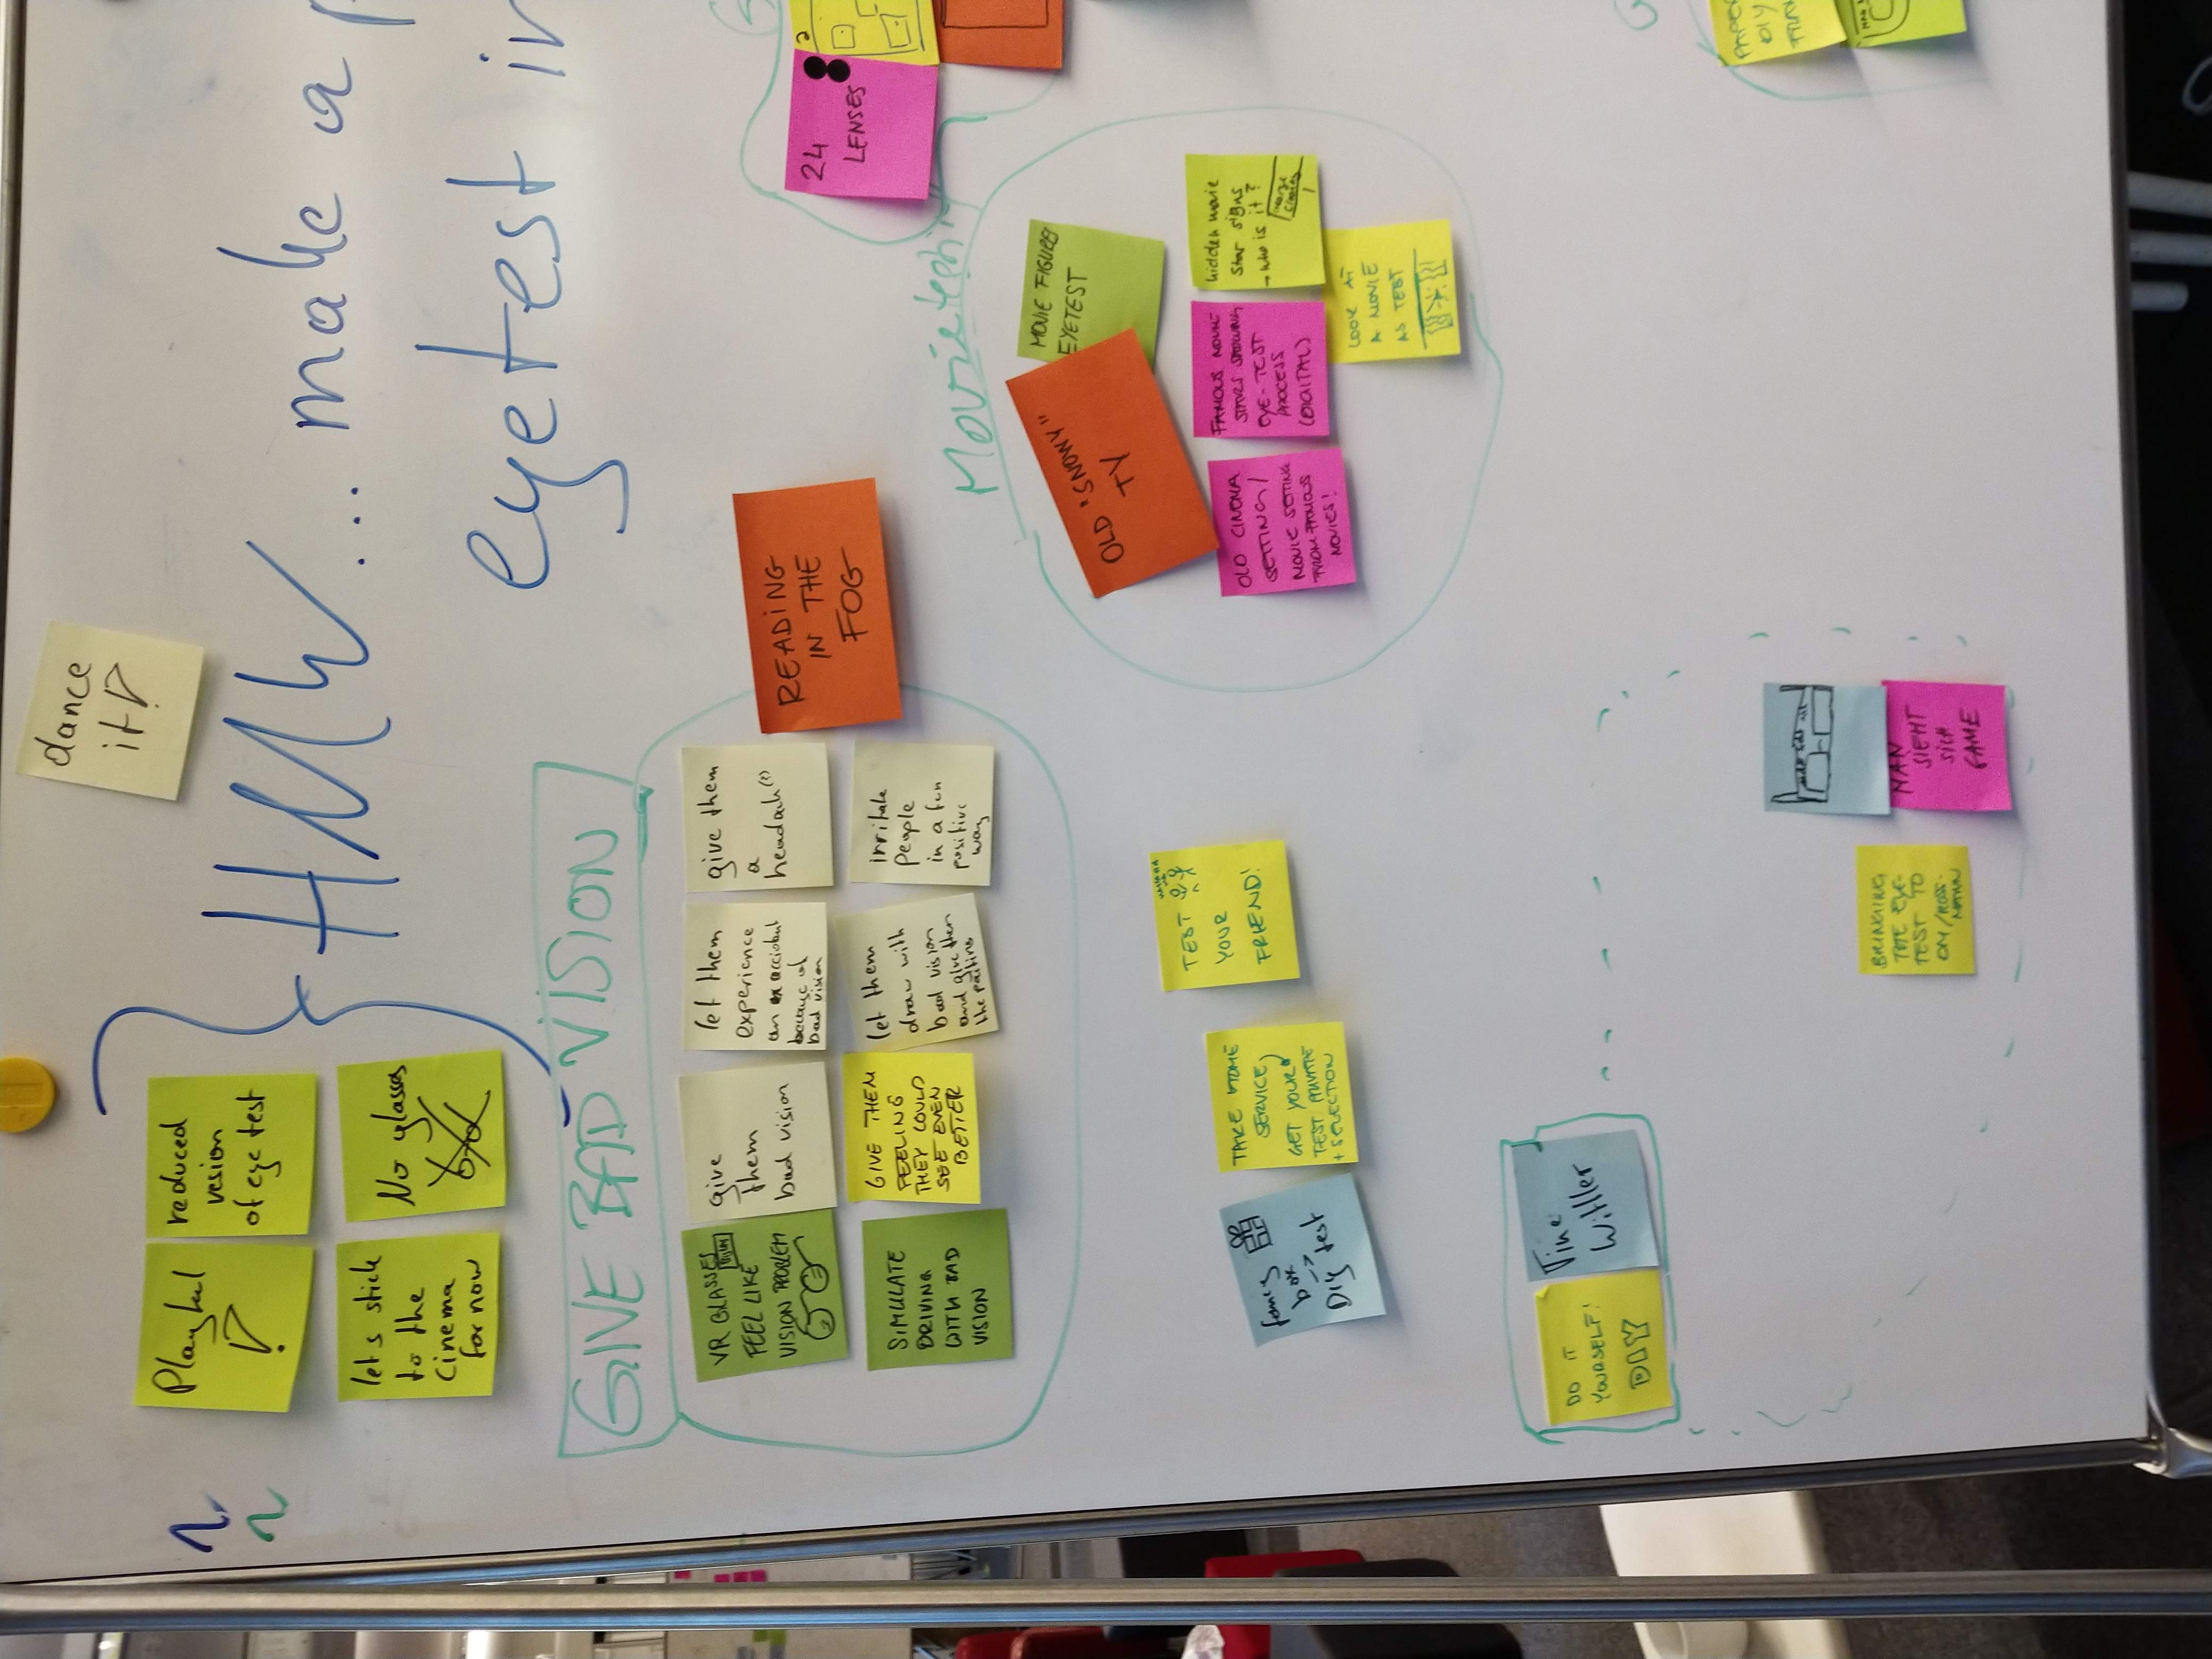 dance
it!
Playful
!
reduced
vesion
of eye test
let s stick
to the
cinema
for now
No glasses
HMW... make a p
eyetest in
GIVE BAD VISION
VR GLASSES
FEEL LIKE
VISION PROBLEM
give
them
bad vision
let them
experience
an accident
because of
bad vision
give them
a
headach(?)
SIMULATE
DRIVING
WITH BAD
VISION
GIVE THEM
FEELING
THEY COULD
SEE EVEN
BETTER
let them
draw with
bad vision
and give them
the
irritate
people
in a fun
positive
way
READING
IN THE
FOG
24
LENSES
2
OLD "SNOWY"
TV
MOVIE FIGURES
EYETEST
OLD CINEMA
SETTING/
MOVIE SETTING
FROM FAMOUS
MOVIES!
FAMOUS MOVIE
STARS SHOWING
EYE-TEST
PROCESS
(DIGITAL)
hidden movie
star signs
→ who is it?
LOOK AT
A MOVIE
AS TEST
fancy
box
->
DIY test
TAKE HOME
SERVICE,
GET YOUR
TEST PRIVATE
+ SELECTION
TEST
YOUR
FRIEND!
DO IT
YOURSELF!
DIY
Tine
Wittler
BRINGING
THE EYE-
TEST TO
DM/ROSS-
MANN
MAN
SIEHT
SICH
GAME
PAPER
DIY